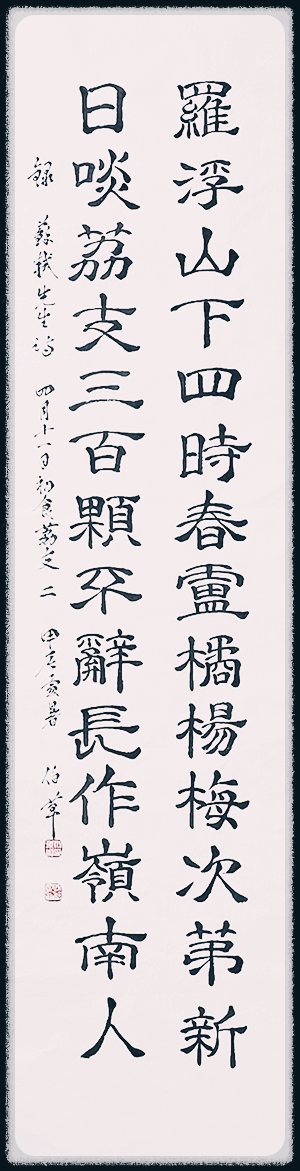 羅浮山下四時春盧橘楊梅次第新
日啖荔支三百顆不辭長作嶺南人
錄 蘇軾先生詩 四月十一日初食荔支 二 甲辰處暑 伯草